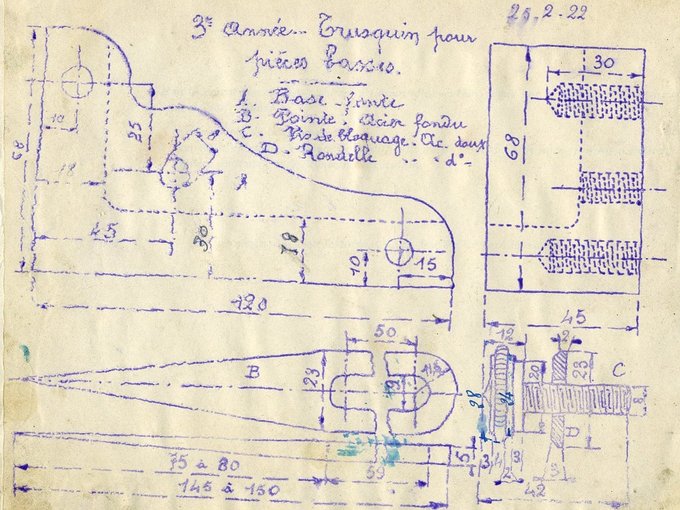 25-2-22
3e Année - Trusquin pour
pièces basses.
A - Base - fonte
B - Pointe : Acier fondu
C - Vis de bloquage - Ac. doux
D - Rondelle - - d°-
10
25
68
18
45
30
18
10
15
120
30
68
45
50
B
23
75 à 80
145 à 150
59
5
12
2
20
23
C
28
24
8
D
3
4
2
3
3
42